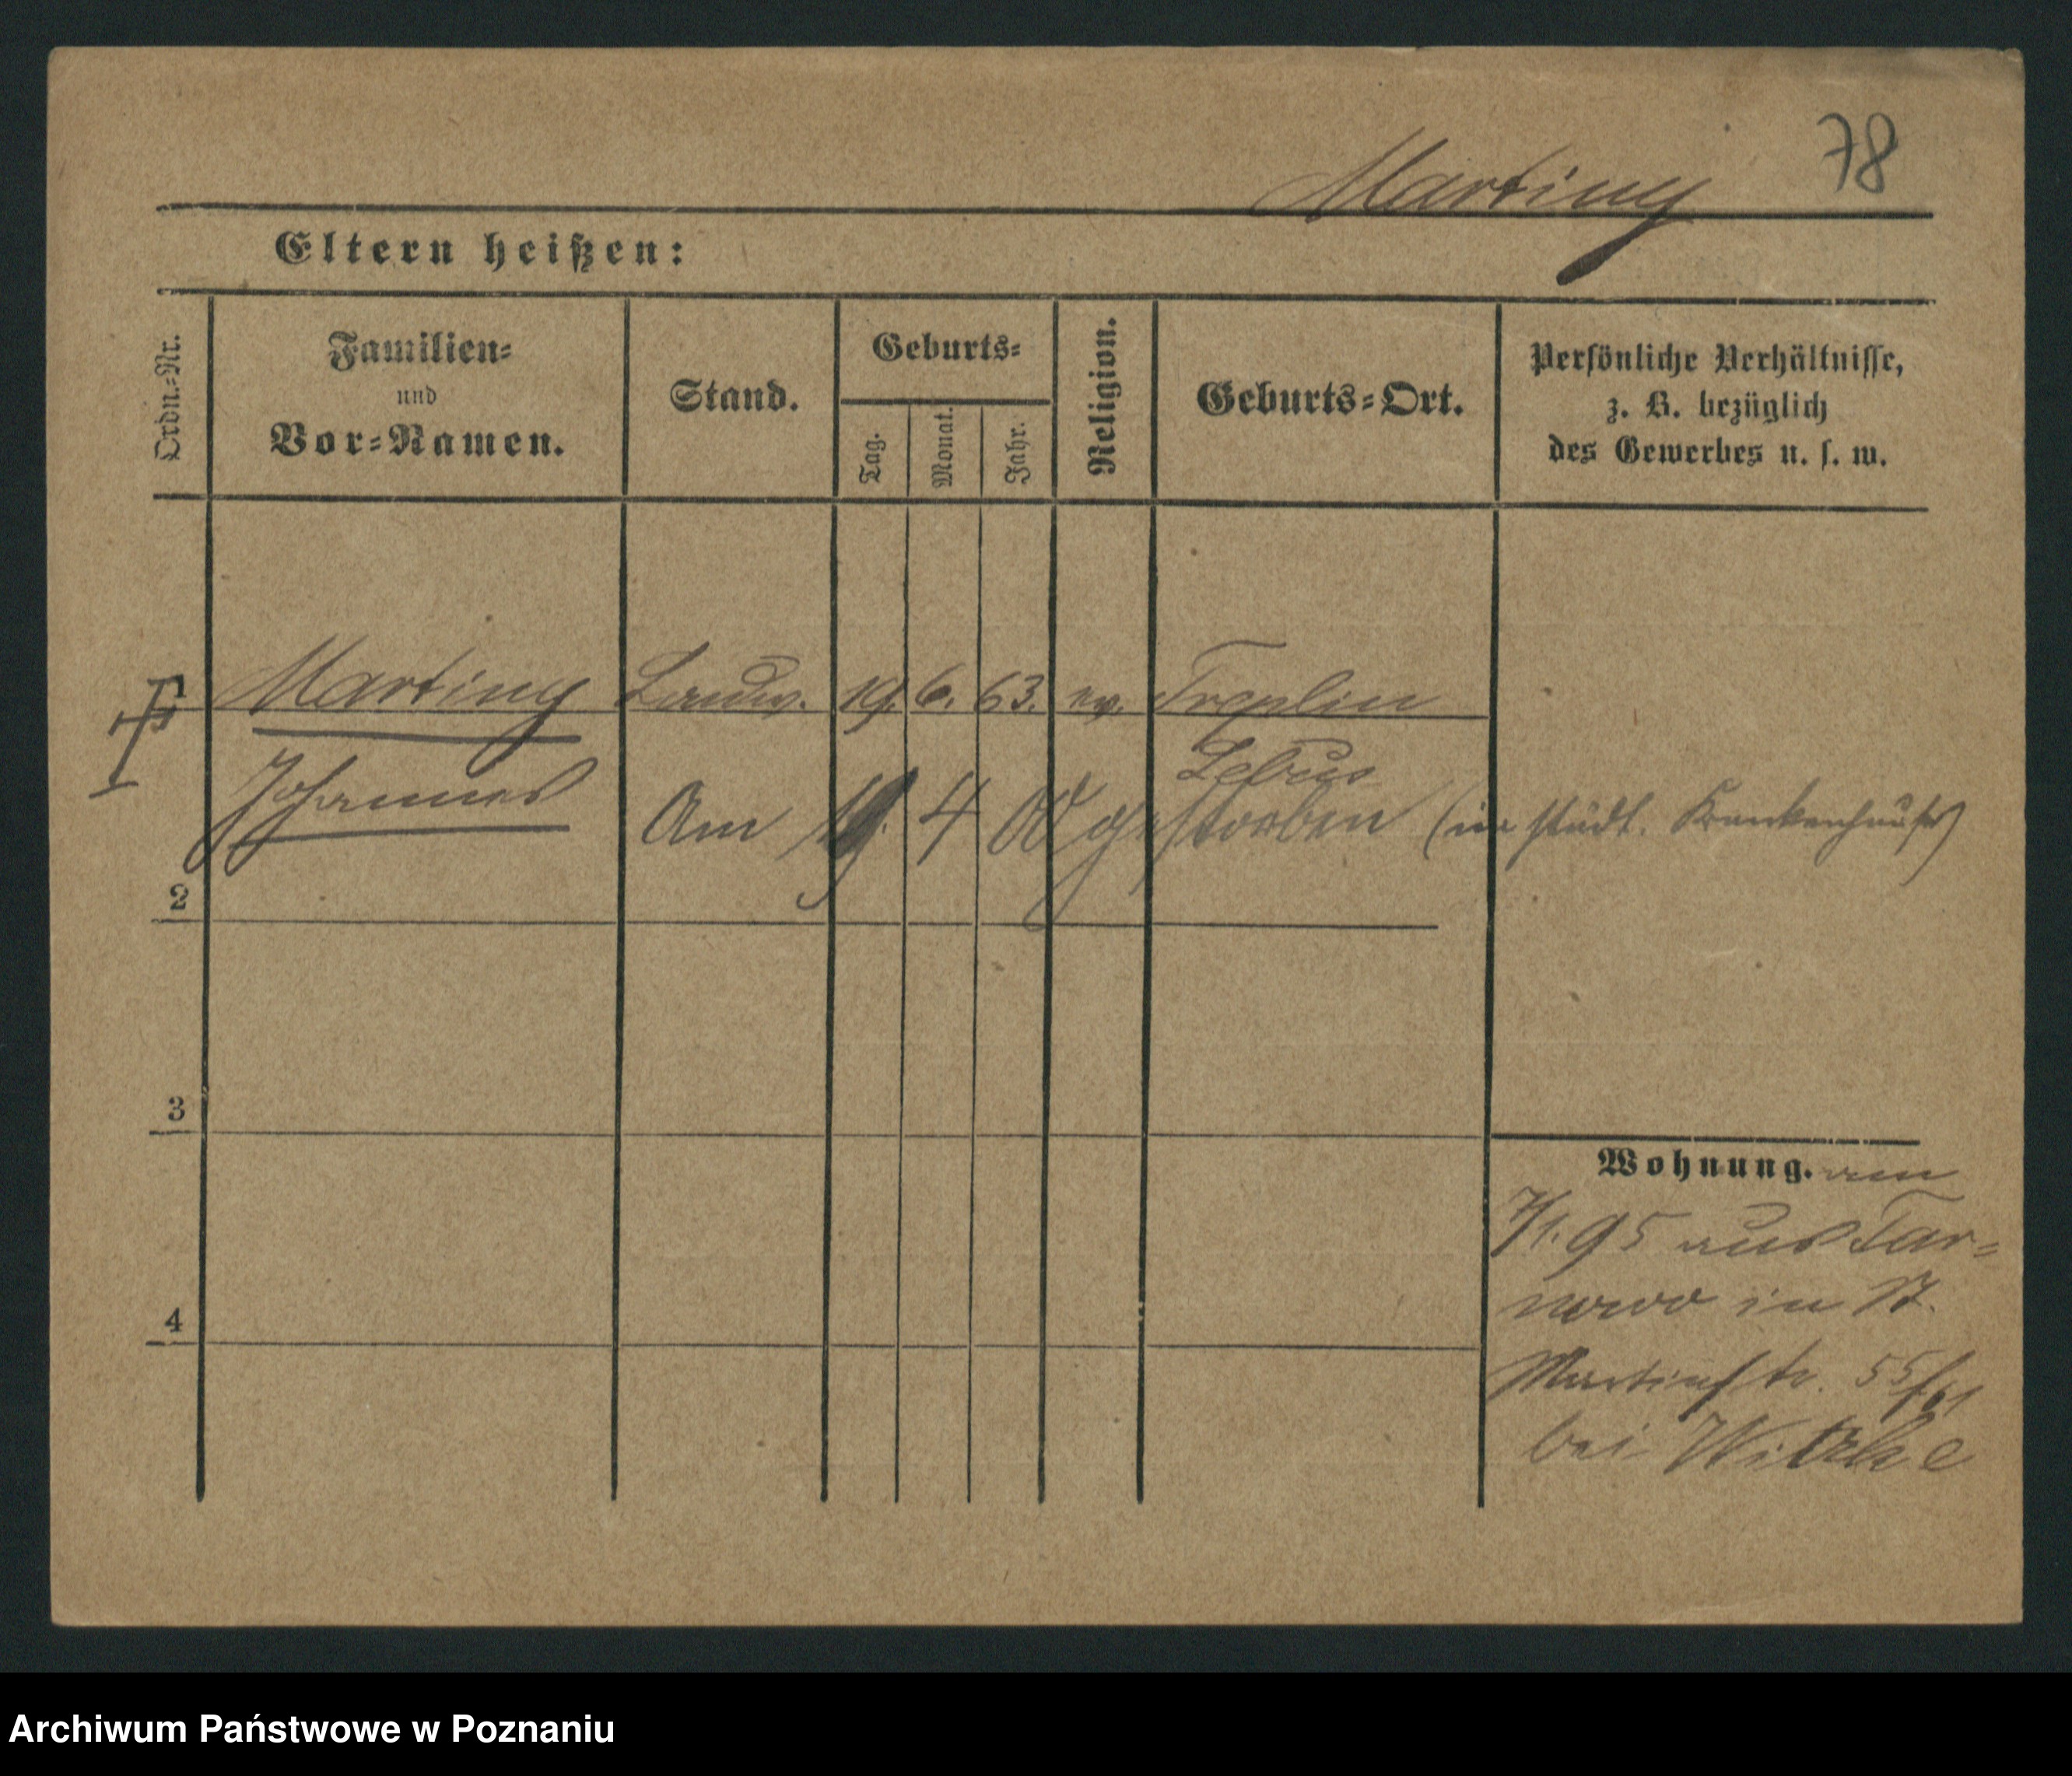 78
Martiny
Eltern heißen:
Ordn.-Nr.
Familien-
und
Vor-Namen.
Stand.
Geburts-
Tag.
Monat.
Jahr.
Religion.
Geburts-Ort.
Persönliche Verhältnisse,
z. B. bezüglich
des Gewerbes u. s. w.
Martiny Landw. 19. 6. 63. ev. Treplin
Lebus
Johannes
Am 19. 4 00 gestorben (im städt. Krankenhause)
2
3
4
Wohnung. am
7/1. 95 aus Tar-
nowo in St.
Martinstr. 55/61
bei
Archiwum Państwowe w Poznaniu